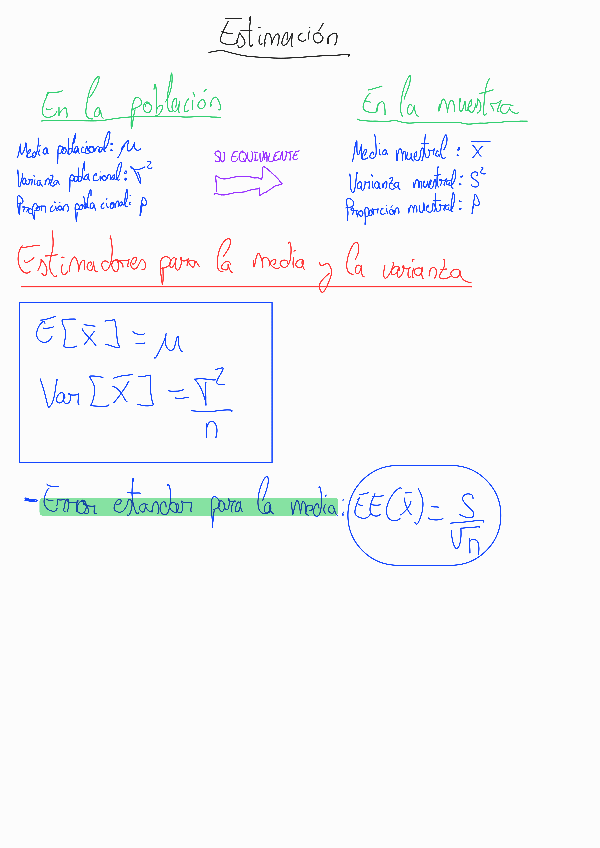 Estimación
En la población
En la muestra
Media poblacional: μ
Varianza poblacional: σ²
Proporción poblacional: p
SU EQUIVALENTE
Media muestral: x̄
Varianza muestral: S²
Proporción muestral: p
Estimadores para la media y la varianza
E[x̄] = μ
Var[x̄] = σ²/n
- Error estandar para la media: EE(x̄) = S/√n